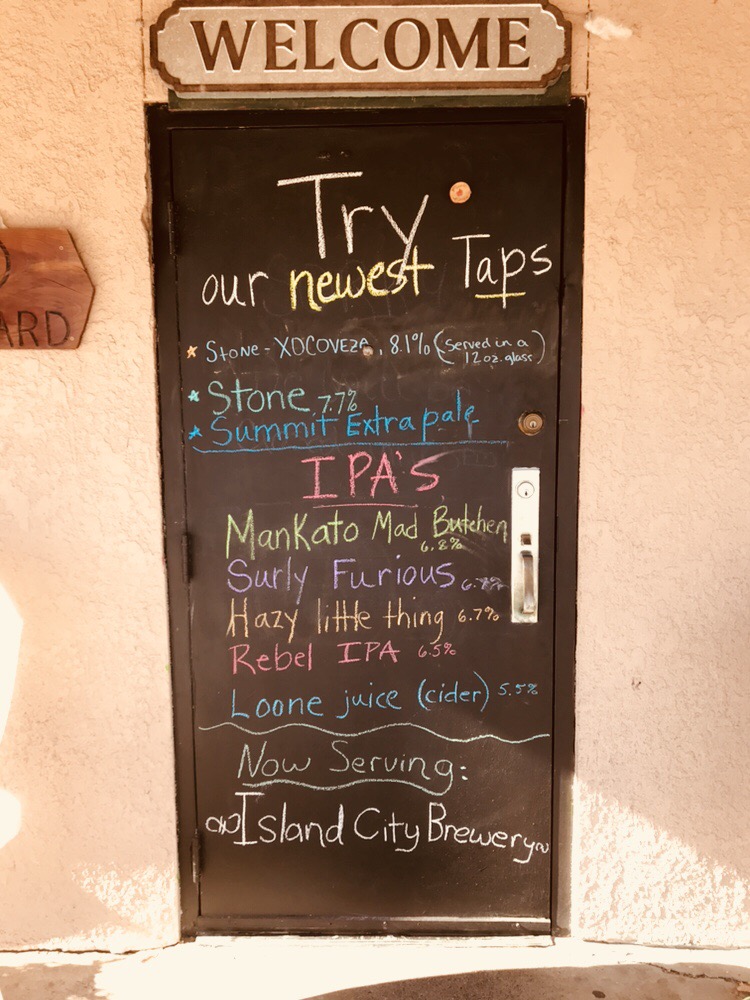 WELCOME
Try
our newest Taps
ARD
* Stone - XOCOVEZA, 8.1% (Served in a
12 oz. glass)
* Stone 7.7%
* Summit Extra pale
IPA'S
Mankato Mad Butcher
6.8%
Surly Furious
Hazy little thing 6.7%
Rebel IPA 6.5%
Loone juice (cider) 5.5%
Now Serving:
Island City Brewery